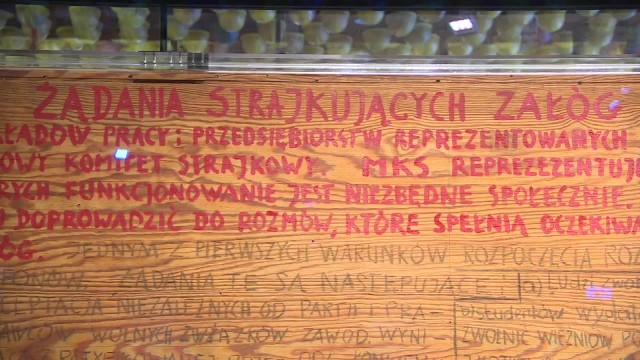 ŻĄDANIA STRAJKUJĄCYCH ZAŁÓG
KŁADÓW PRACY i PRZEDSIĘBIORSTW REPREZENTOWANYCH
OWY KOMITET STRAJKOWY. MKS REPREZEZENTUJE
RYCH FUNKCJONOWANIE JEST NIEZBĘDNE SPOŁECZNIE.
U DOPROWADZIĆ DO ROZMÓW, KTÓRE SPEŁNIĄ OCZEKIWA
ÓG. JEDNYM Z PIERWSZYCH WARUNKÓW ROZPOCZĘCIA ROZ
FONÓW. ŻĄDANIA TE SĄ NASTĘPUJĄCE: a) Ludzi
NIEZALEŻNYCH OD PARTII PRA- b) studentów wydal
WOLNYCH ZWIĄZKÓW ZAWOD. WYNI- ZWOLNIĆ WIĘŹNIÓW P